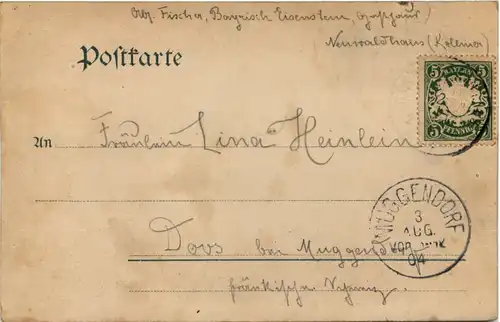 Abs. Fischer, Bayrisch Eisenstein, Gasthaus
Neuwaldhaus
Postkarte
5 BAYERN 5
5 PFENNIG 5
An Fräulein Lina Heinlein
MUGGENDORF
3
AUG.
VOR.
04
Doos bei Muggendorf
fränkische Schweiz